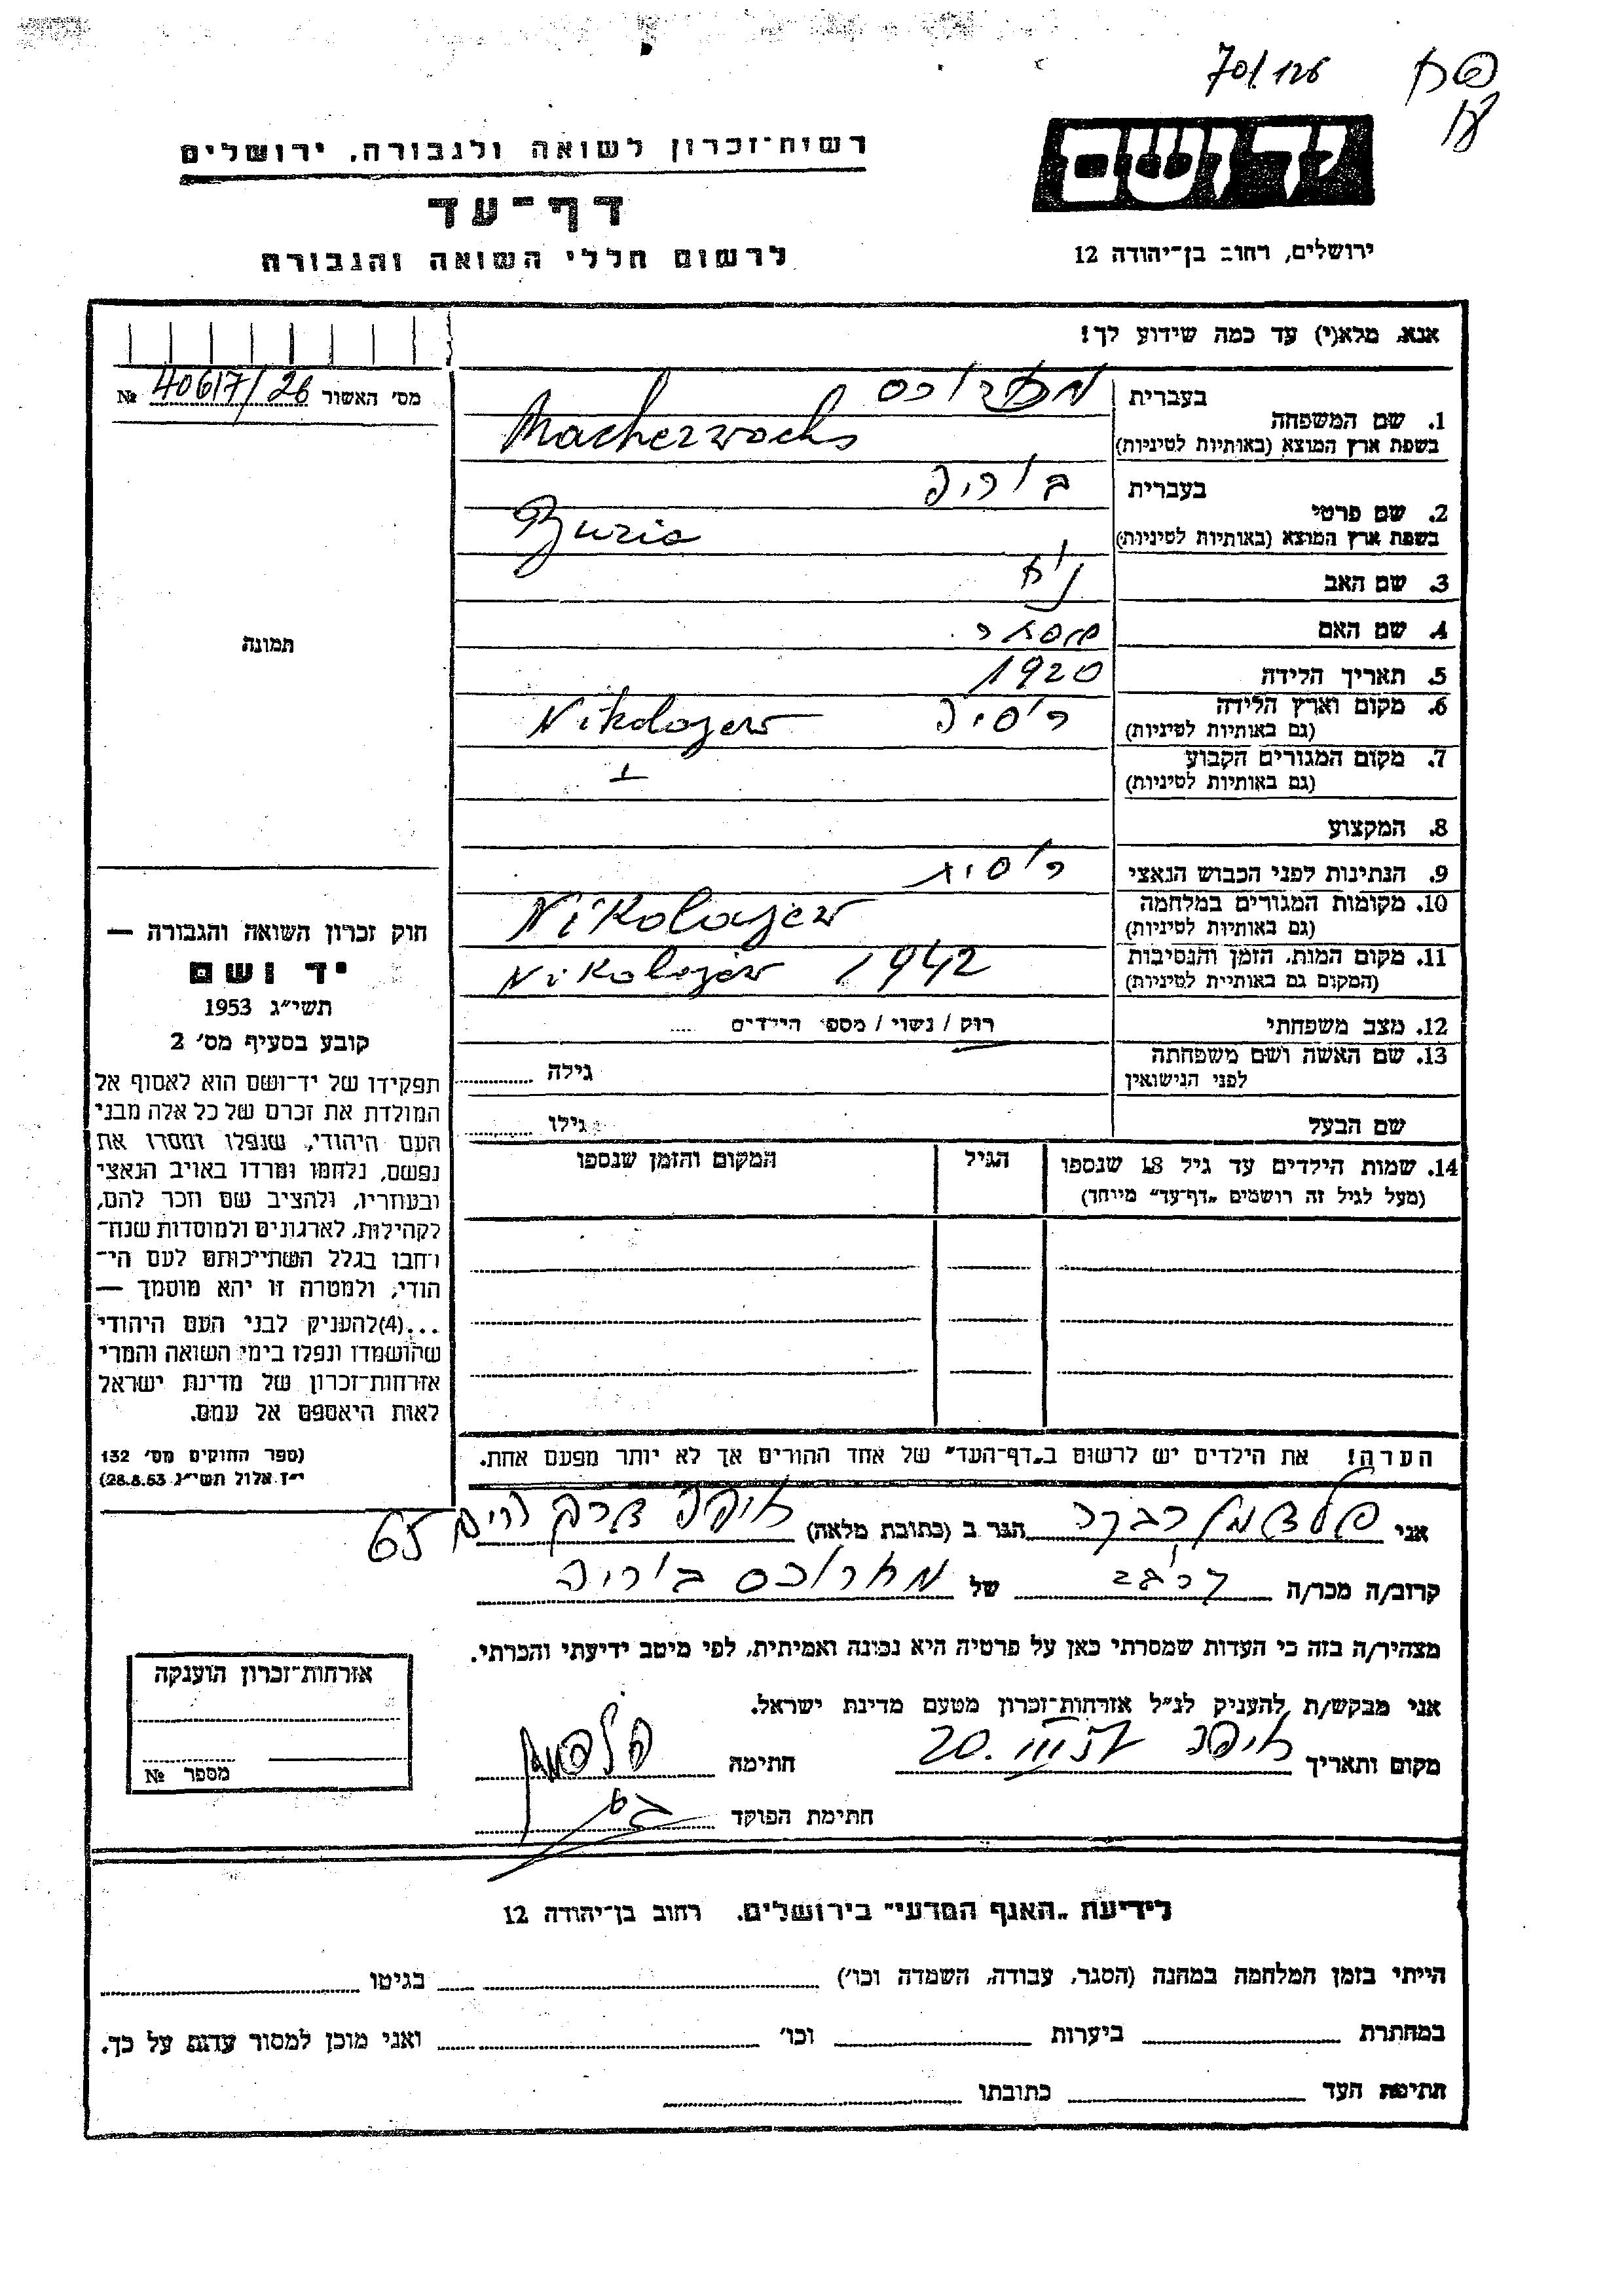 70/126
רשות־זכרון לשואה ולגבורה, ירושלים
יד ושם
דף־עד
לרשום חללי השואה והגבורה
ירושלים, רחוב בן־יהודה 12
אנא, מלא(י) עד כמה שידוע לך!
מס׳ האשור № 40617/26
תמונה
1. שם המשפחה
בעברית
בשפת ארץ המוצא (באותיות לטיניות) Macherwochs
2. שם פרטי
בעברית בוריה
בשפת ארץ המוצא (באותיות לטיניות) Buria
3. שם האב
4. שם האם
5. תאריך הלידה 1920
6. מקום וארץ הלידה רוסיה Nikolajew
(גם באותיות לטיניות)
7. מקום המגורים הקבוע
(גם באותיות לטיניות)
8. המקצוע
9. הנתינות לפני הכבוש הנאצי רוסית
10. מקומות המגורים במלחמה Nikolajew
(גם באותיות לטיניות)
11. מקום המות, הזמן והנסיבות Nikolajew 1942
(המקום גם באותיות לטיניות)
12. מצב משפחתי רוק / נשוי / מספר הילדים ....
13. שם האשה ושם משפחתה גילה
לפני הנישואין
שם הבעל גילו
14. שמות הילדים עד גיל 18 שנספו הגיל המקום והזמן שנספו
(מעל לגיל זה רושמים „דף־עד” מיוחד)
חוק זכרון השואה והגבורה —
יד ושם
תשי״ג 1953
קובע בסעיף מס׳ 2
תפקידו של יד־ושם הוא לאסוף אל
המולדת את זכרם של כל אלה מבני
העם היהודי, שנפלו ומסרו את
נפשם, נלחמו ומרדו באויב הנאצי
ובעוזריו, ולהציב שם וזכר להם,
לקהילות, לארגונים ולמוסדות שנח־
רחבו בגלל השתייכותם לעם הי־
הודי, ולמטרה זו יהא מוסמך —
...(4)להעניק לבני העם היהודי
שהושמדו ונפלו בימי השואה והמרי
אזרחות־זכרון של מדינת ישראל
לאות היאספם אל עמם.
(ספר החוקים מס׳ 132
י״ז אלול תשי״ג 28.8.53)
הערה! את הילדים יש לרשום ב„דף־העד” של אחד ההורים אך לא יותר מפעם אחת.
אני פלדמן רבקה הגר ב (כתובת מלאה) חיפה דרך הים 65
קרוב/ה מכר/ה של מחרוכס בוריה
מצהיר/ה בזה כי העדות שמסרתי כאן על פרטיה היא נכונה ואמיתית, לפי מיטב ידיעתי והכרתי.
אני מבקש/ת להעניק לנ״ל אזרחות־זכרון מטעם מדינת ישראל.
מקום ותאריך חיפה חתימה
חתימת הפוקד
אזרחות־זכרון הוענקה
מספר №
לידיעת „האגף המדעי” בירושלים, רחוב בן־יהודה 12
הייתי בזמן המלחמה במחנה (הסגר, עבודה, השמדה וכו׳) בגיטו
במחתרת ביערות וכו׳ ואני מוכן למסור עדות על כך.
חתימת העד כתובתו